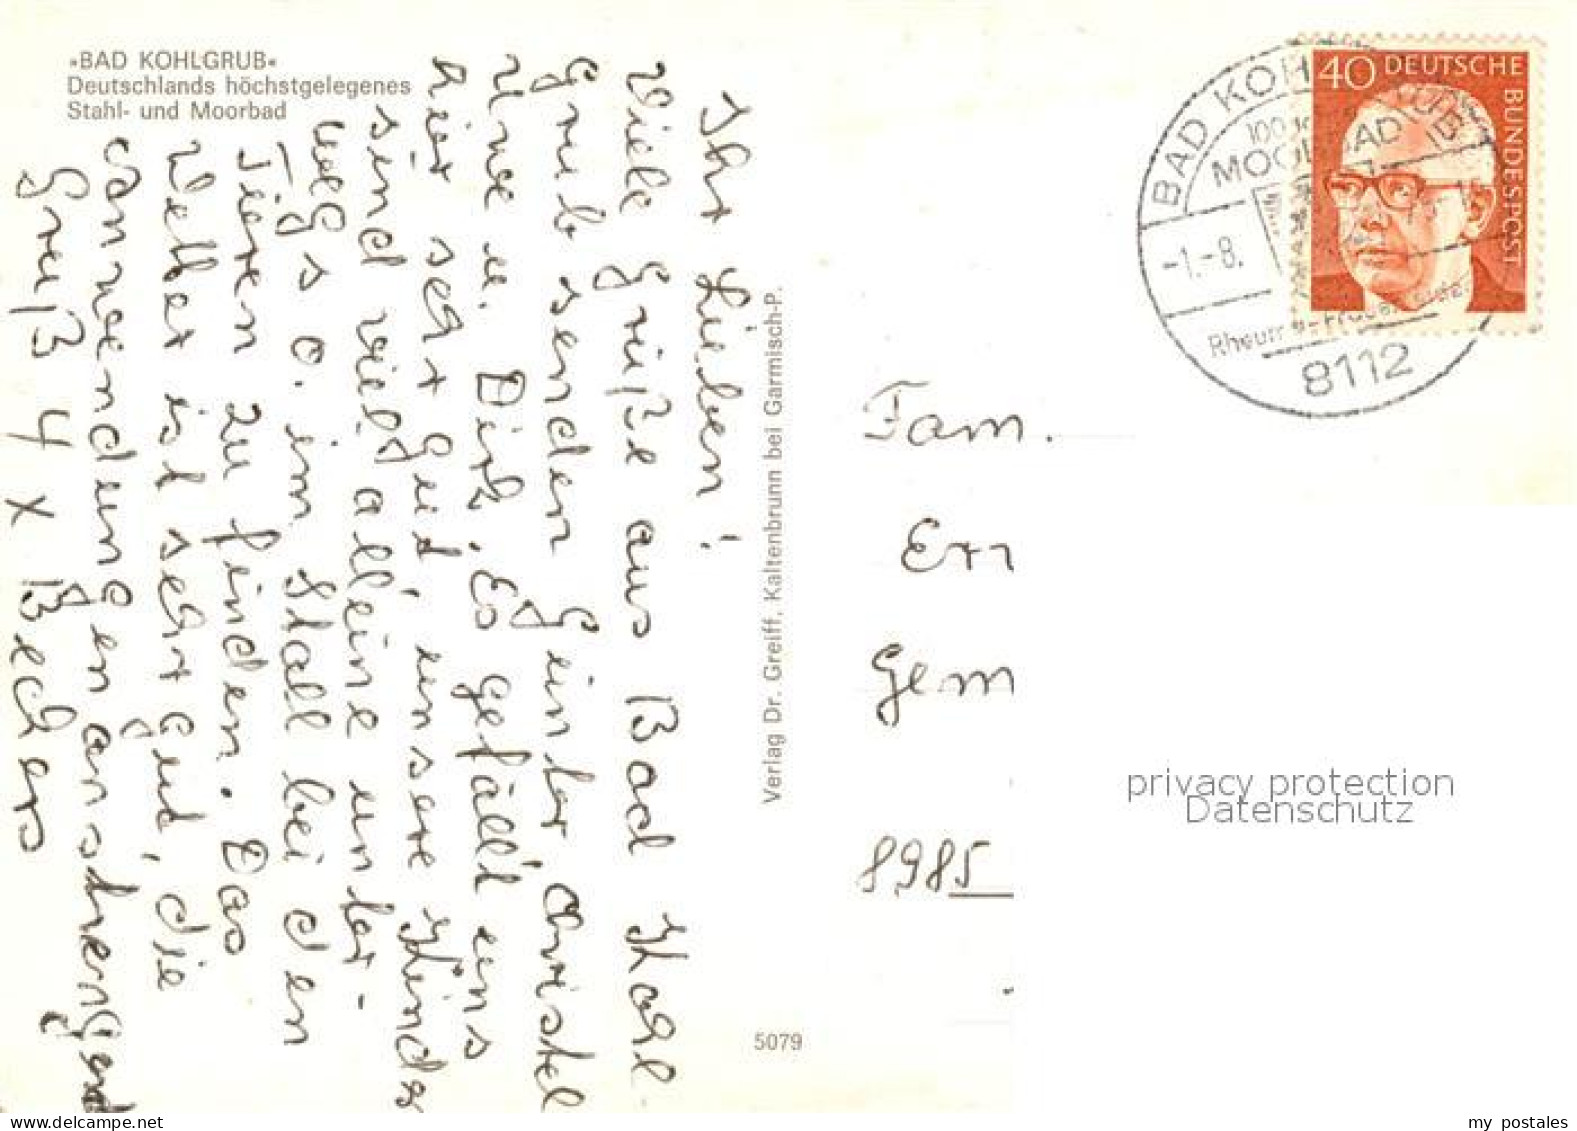 »BAD KOHLGRUB«
Deutschlands höchstgelegenes
Stahl- und Moorbad
Ihr Lieben!
Viele Grüße aus Bad Kohl
grub senden Günter Christel
Uwe u. Dirk. Es gefällt uns
hier sehr gut, unsere Kinder
sind viel alleine unter-
wegs o. im Stall bei den
Tieren zu finden. Das
Wetter ist sehr gut, die
Anwendungen anstrengend
Gruß 4 x Bechers
Verlag Dr. Greiff, Kaltenbrunn bei Garmisch-P.
5079
BAD KOH
MOOR BAD
-1.-8.
8112
40 DEUTSCHE
BUNDESPOST
Fam.
Ern
Gem
8985
privacy protection
Datenschutz
www.delcampe.net
my postales